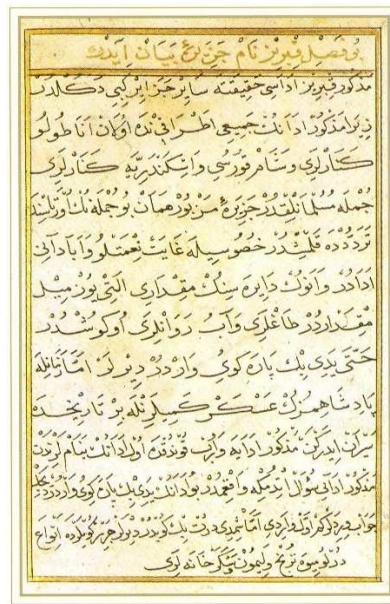 بو فصل قبريز نام جزيرهٔ بيان ايدر
مذكور قبريز اداسى حقيقتده ساير جزايركبى دكلدر
زيرا مذكور ادانك جميعى اطرافنده اولان اناطولو
كنارلرى وشام قورسى واسكندريه كنارلرى
جمله مسلمانلقدر جزيرهٔ مزبور همان بو جمله نك اورتاسنده
خصوصيله غايت نعمتلو واباداني
ادادر وانوك دايره سنك مقدارى التى يوز ميل
مقداردر طاغلرى واب روانلرى اوكوشدر
حتى يدى بيك پاره كوى واردر ديرلر اما قافله
پادشاهمزك عسكر كميلريله بر تاريخده
سيران ايدركن مذكور ادايه وارب قوندقده اول ادانك بنام لرندن
مذكور اداني سؤال ايتدمكه واقعميدر بو ادانك يدى بيك پاره كوى واردر
جواب ويرديلركم اول وار ايدى اما شمدى درت بيك كويدر ديرلر انواع
درلو ميوه ترنج وليمون وشكر خانه لرى